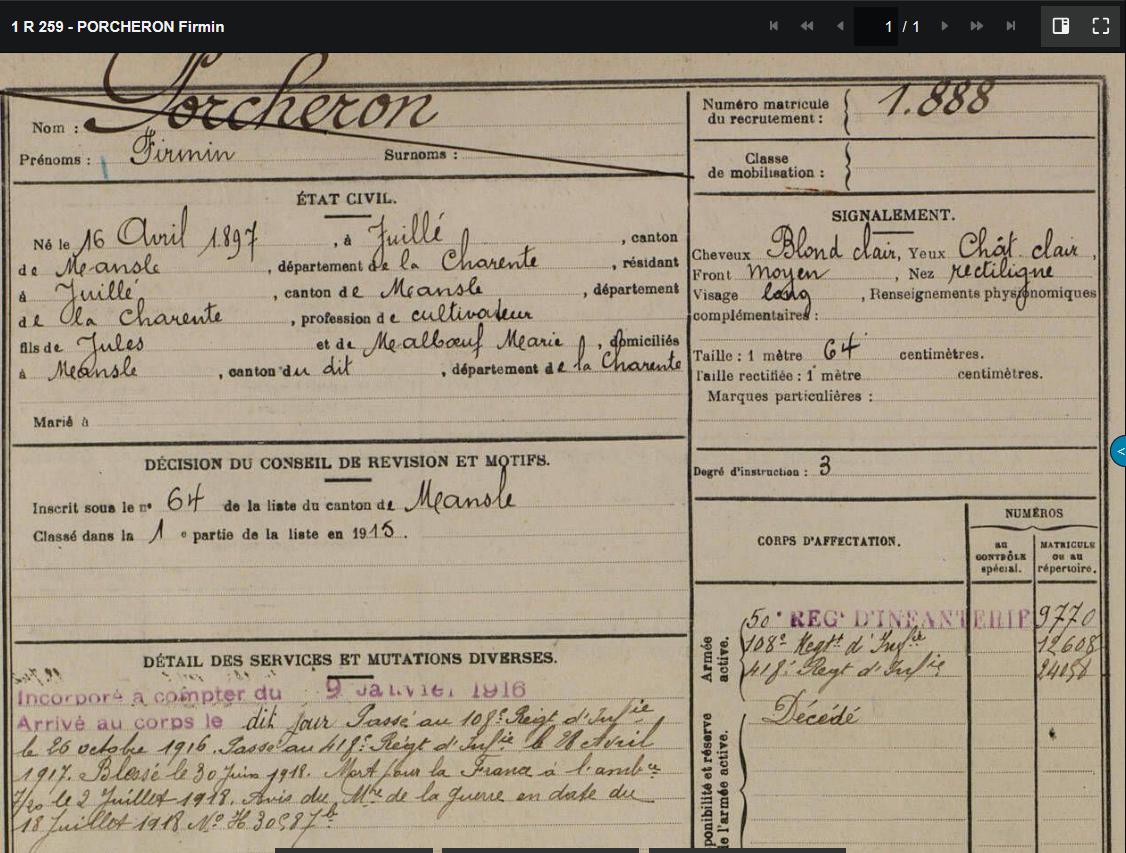 1 R 259 - PORCHERON Firmin
1 / 1
Nom : Porcheron
Prénoms : Firmin Surnoms :
Numéro matricule du recrutement : 1.888
Classe de mobilisation :
ÉTAT CIVIL.
Né le 16 Avril 1.897, à Juillé, canton
de Mansle, département de la Charente, résidant
à Juillé, canton de Mansle, département
de la Charente, profession de cultivateur
fils de Jules et de Malbœuf Marie, domiciliés
à Mansle, canton du dit, département de la Charente
Marié à
SIGNALEMENT.
Cheveux Blond clair, Yeux Chât. clair,
Front moyen, Nez rectiligne
Visage long, Renseignements physionomiques
complémentaires :
Taille : 1 mètre 64 centimètres.
Taille rectifiée : 1 mètre centimètres.
Marques particulières :
Degré d'instruction : 3
DÉCISION DU CONSEIL DE REVISION ET MOTIFS.
Inscrit sous le n° 64 de la liste du canton de Mansle
Classé dans la 1 e partie de la liste en 1915.
CORPS D'AFFECTATION.
NUMÉROS
au CONTRÔLE spécial.
MATRICULE ou au répertoire.
Armée active.
50e REGt D'INFANTERIE 9770
108e Regt d'Infie 12608
418e Regt d'Infie
ponibilité et réserve de l'armée active.
Décédé
DÉTAIL DES SERVICES ET MUTATIONS DIVERSES.
Incorporé à compter du 9 Janvier 1916
Arrivé au corps le dit jour Passé au 108e Régt d'Infie
le 26 octobre 1916. Passé au 418e Régt d'Infie le 28 Avril
1917. Blessé le 30 Juin 1918. Mort pour la France à l'ambce
7/20 le 2 Juillet 1918. Avis du Mtre de la guerre en date du
18 Juillet 1918 No